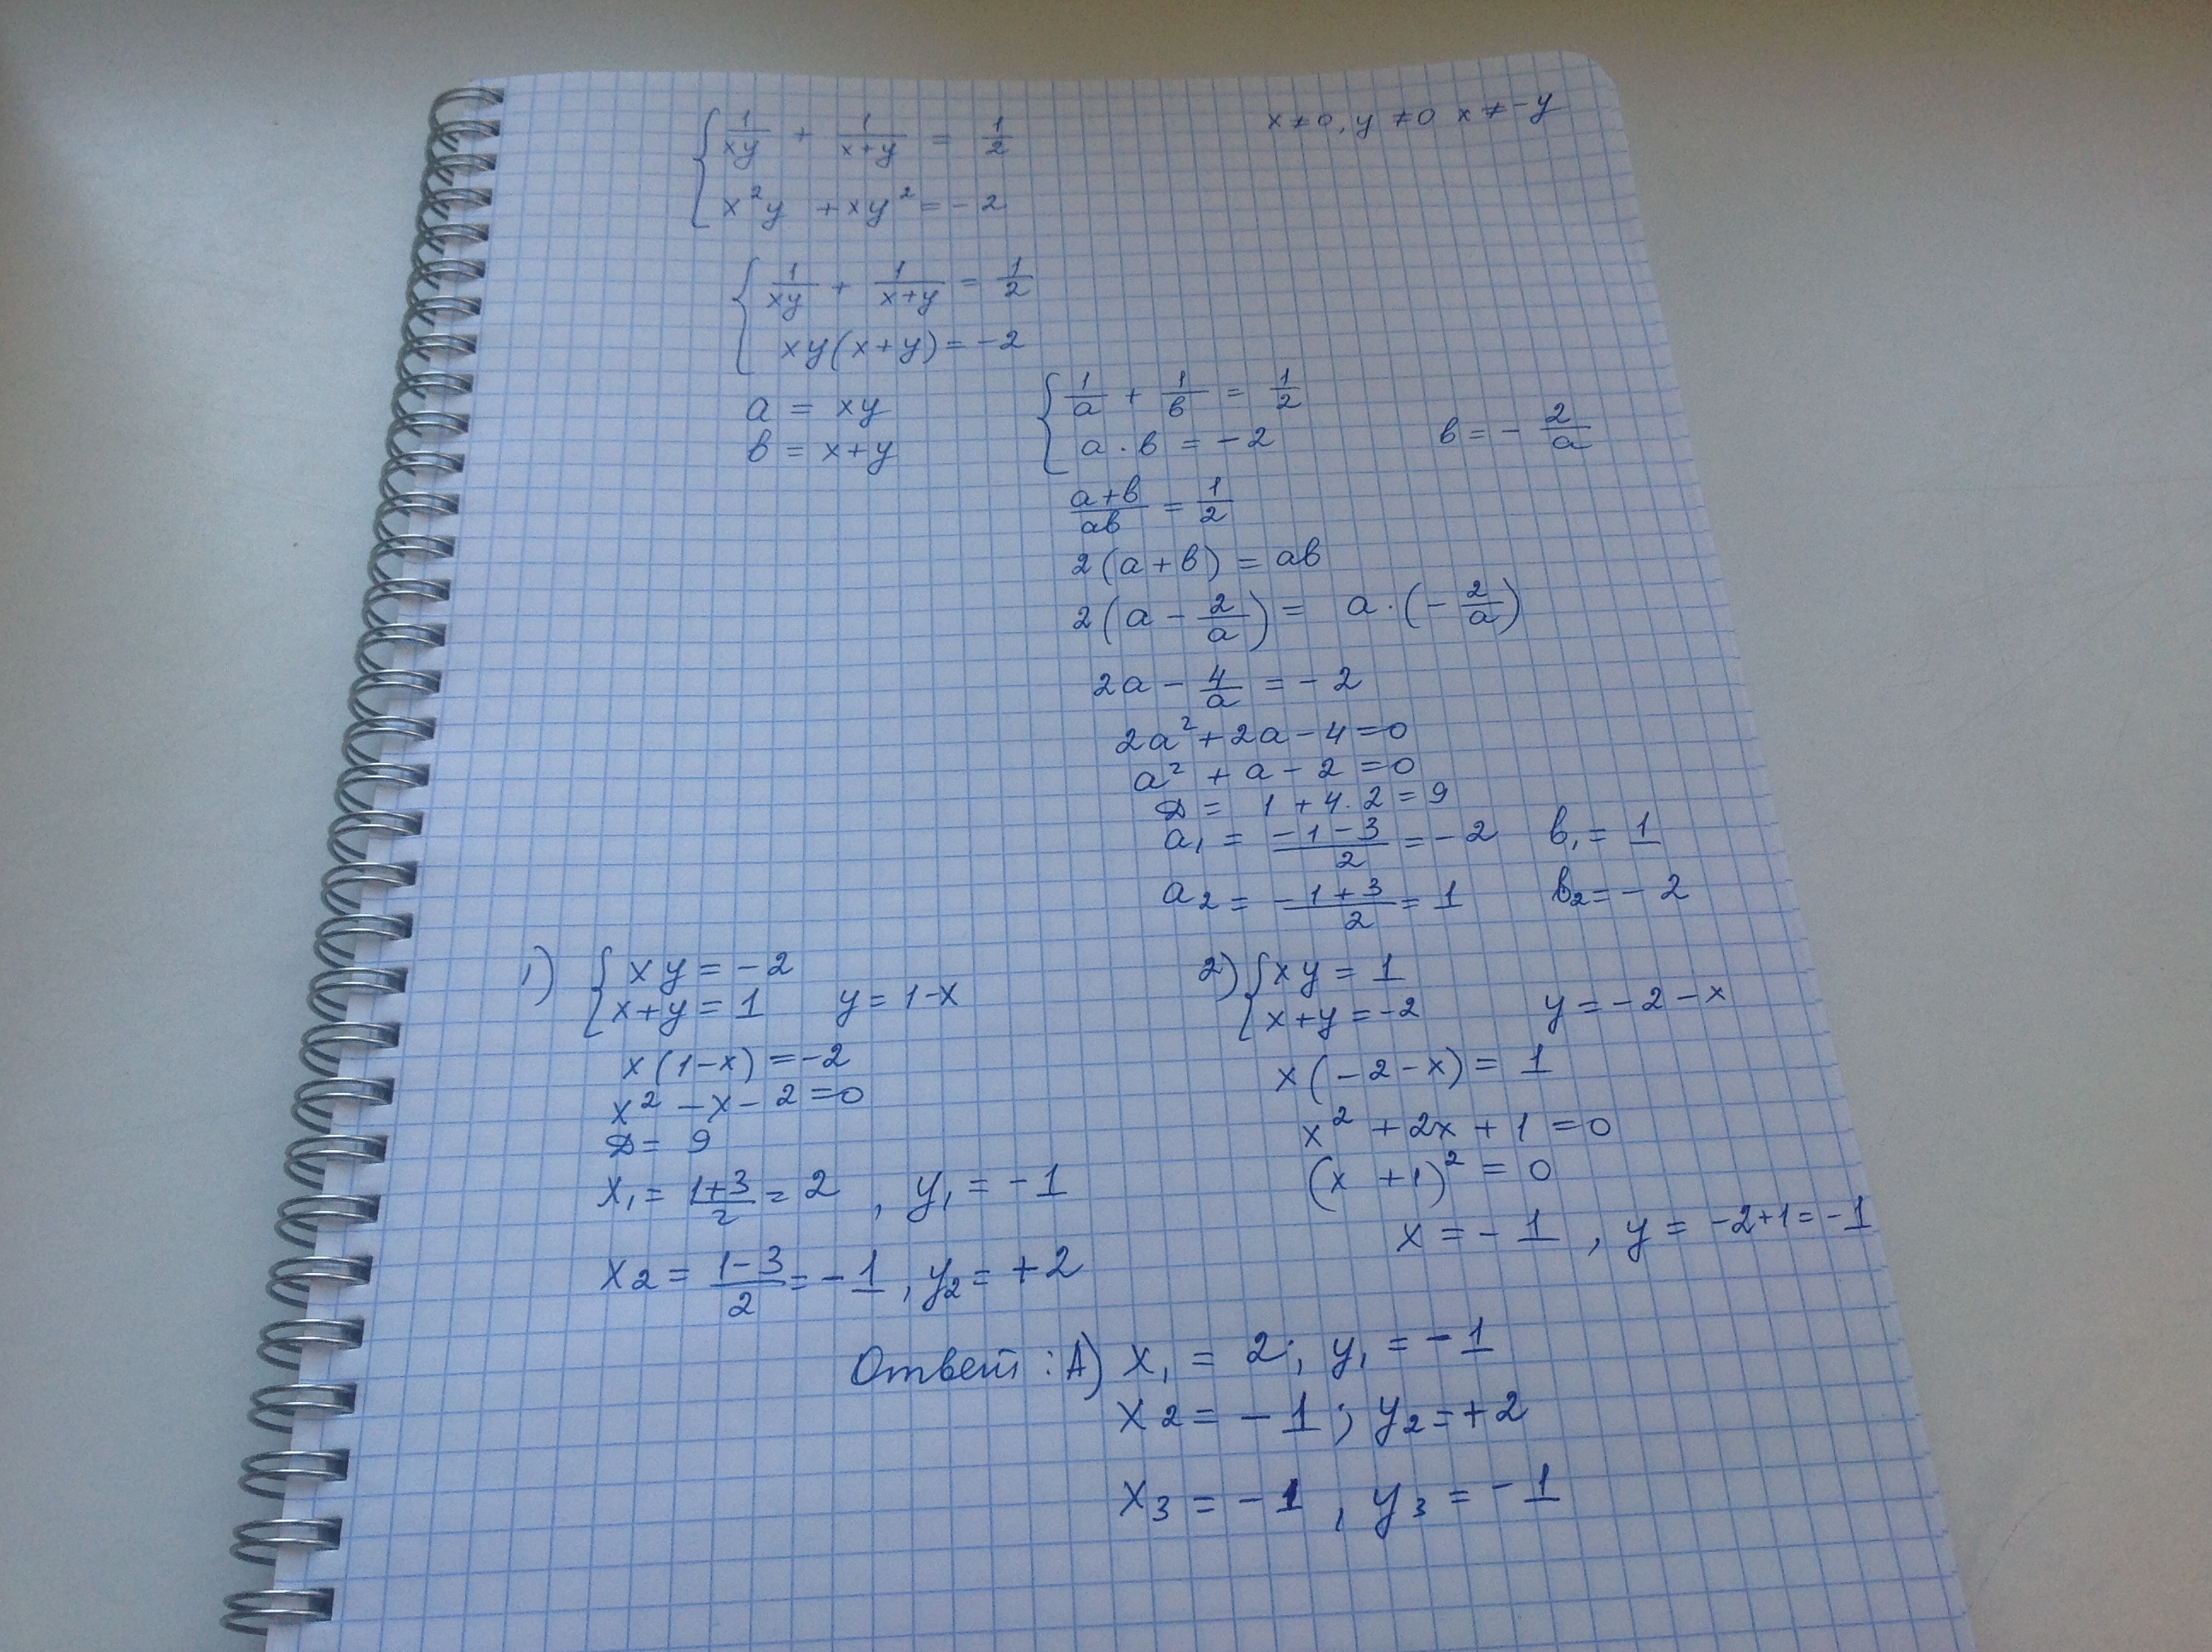 1/xy + 1/x+y = 1/2   x≠0, y≠0 x≠-y
x²y + xy² = -2
1/xy + 1/x+y = 1/2
xy(x+y) = -2
a = xy   1/a + 1/в = 1/2
в = x+y   a·в = -2   в = -2/a
a+в/aв = 1/2
2(a+в) = aв
2(a - 2/a) = a·(-2/a)
2a - 4/a = -2
2a² + 2a - 4 = 0
a² + a - 2 = 0
D = 1 + 4·2 = 9
a₁ = -1-3/2 = -2   в₁ = 1
a₂ = -1+3/2 = 1   в₂ = -2
1) xy = -2
x+y = 1   y = 1-x
x(1-x) = -2
x² - x - 2 = 0
D = 9
x₁ = 1+3/2 = 2, y₁ = -1
x₂ = 1-3/2 = -1, y₂ = +2
2) xy = 1
x+y = -2   y = -2-x
x(-2-x) = 1
x² + 2x + 1 = 0
(x+1)² = 0
x = -1, y = -2+1 = -1
Ответ: А) x₁ = 2; y₁ = -1
x₂ = -1; y₂ = +2
x₃ = -1, y₃ = -1